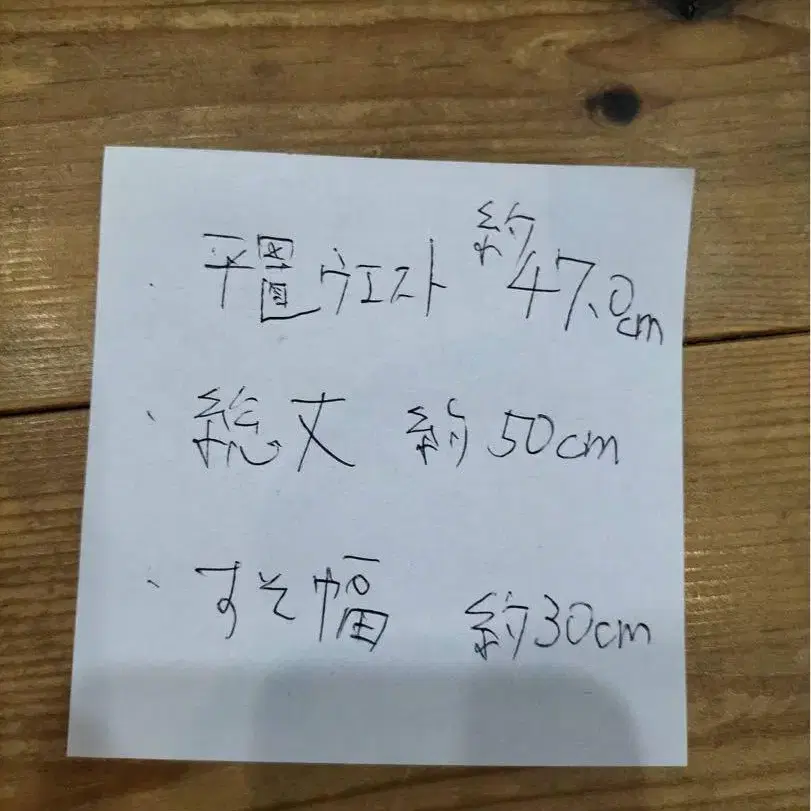 ・平置ウエスト 約47.0cm
・総丈 約50cm
・すそ幅 約30cm